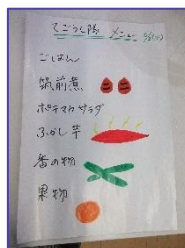 てごうし隊 メニュー
ごはん
筑前煮
ポテマカサラダ
ふかし芋
香の物
果物